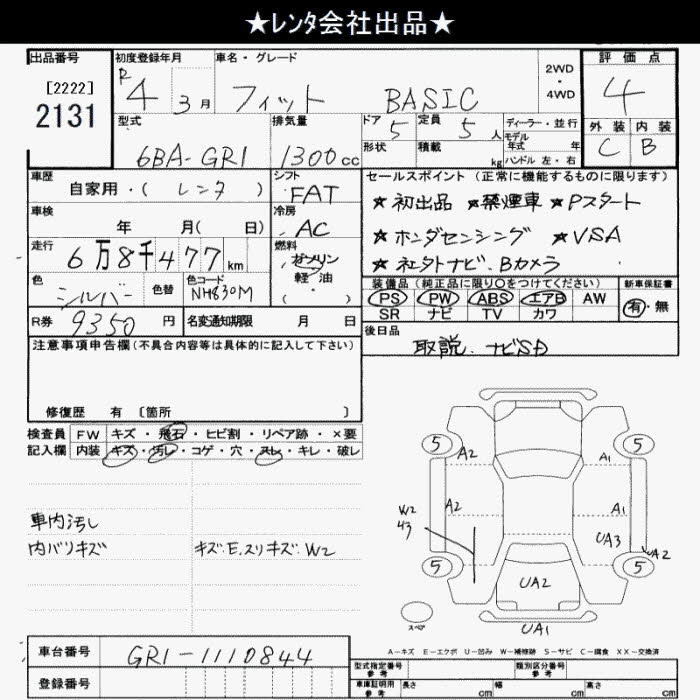 ★レンタ会社出品★
出品番号 初度登録年月 車名・グレード 2WD・4WD 評価点
[2222] 2131 R4 3月 フィット BASIC 4
型式 排気量 ドア 定員 ディーラー・並行 外装 内装
6BA-GR1 1300cc 5 5人 モデル年式 年 C B
形状 積載 kg ハンドル 左・右
車歴 シフト セールスポイント (正常に機能するものに限ります)
自家用・(レンタ) FAT ★初出品 ★禁煙車 ★Pスタート
車検 年 月( 日) 冷房 AC ★ホンダセンシング ★VSA
走行 6万8千477km 燃料 ガソリン 軽油 ( ) ★社外ナビ、Bカメラ
色 シルバー 色替 色コード NH830M
装備品 (純正品に限り○をつけてください) 新車保証書
PS PW ABS エアB AW 有・無
SR ナビ TV カワ
R券 9350円 名変通知期限 月 日 後日品
取説、ナビSD
注意事項申告欄 (不具合内容等は具体的に記入して下さい)
修復歴 有 〔箇所 〕
検査員 FW キズ・飛石・ヒビ割・リペア跡・×要
記入欄 内装 キズ・汚レ・コゲ・穴・スレ・キレ・破レ
車内汚し
内バリキズ キズ、E、スリキズ、W2
5 A2 A1 5
W2 43 A2 A1
UA3
5 UA2 5 UA2
スペア UA1
A−キズ E−エクボ U−凹み W−補修跡 S−サビ C−腐食 XX−交換済
車台番号 GR1-1110844
登録番号
型式指定番号 参考 類別区分番号 参考
車庫証明用 参考 長さ cm 幅 cm 高さ cm